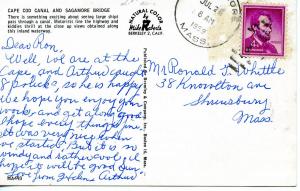 CAPE COD CANAL AND SAGAMORE BRIDGE
There is something exciting about seeing large ships
pass through a canal. Motorists line the highway and
hidden thrill at the close up views obtained along
this inland waterway.
NATURAL COLOR
Mike Roberts
BERKELEY 2, CALIF.
6 AM
MASS.
Dear Ron,
Well, we are at the
Cape and Arthur caught
8 pollock, so he is happy
we hope you enjoy your
work, and get along good
hope everything is fine
It was very nice when
we started. But it is so
windy and rather cool, I
hope it will be a good sun
from Helen Arthur
Mr Ronald F. Whittle
38 Knowlton Ave
Shrewsbury
Mass.